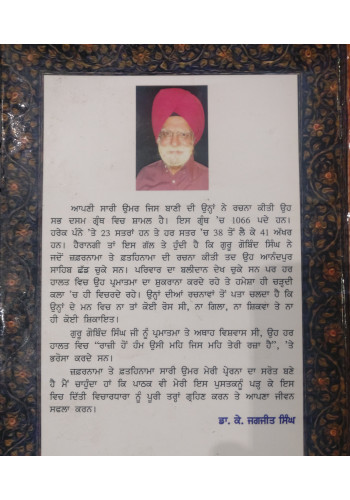 ਆਪਣੀ ਸਾਰੀ ਉਮਰ ਜਿਸ ਬਾਣੀ ਦੀ ਉਨ੍ਹਾਂ ਨੇ ਰਚਨਾ ਕੀਤੀ ਉਹ
ਸਭ ਦਸਮ ਗ੍ਰੰਥ ਵਿਚ ਸ਼ਾਮਲ ਹੈ। ਇਸ ਗ੍ਰੰਥ 'ਚ 1066 ਪਦੇ ਹਨ।
ਹਰੇਕ ਪੰਨੇ 'ਤੇ 23 ਸਤਰਾਂ ਹਨ ਤੇ ਹਰ ਸਤਰ 'ਚ 38 ਤੋਂ ਲੈ ਕੇ 41 ਅੱਖਰ
ਹਨ। ਹੈਰਾਨਗੀ ਤਾਂ ਇਸ ਗੱਲ ਤੇ ਹੁੰਦੀ ਹੈ ਕਿ ਗੁਰੂ ਗੋਬਿੰਦ ਸਿੰਘ ਨੇ
ਜਦੋਂ ਜ਼ਫ਼ਰਨਾਮਾ ਤੇ ਫ਼ਤਹਿਨਾਮਾ ਦੀ ਰਚਨਾ ਕੀਤੀ ਤਦ ਉਹ ਆਨੰਦਪੁਰ
ਸਾਹਿਬ ਛੱਡ ਚੁਕੇ ਸਨ। ਪਰਿਵਾਰ ਦਾ ਬਲੀਦਾਨ ਦੇਖ ਚੁਕੇ ਸਨ ਪਰ ਹਰ
ਹਾਲਤ ਵਿਚ ਉਹ ਪ੍ਰਮਾਤਮਾ ਦਾ ਸ਼ੁਕਰਾਨਾ ਕਰਦੇ ਰਹੇ ਤੇ ਹਮੇਸ਼ਾ ਹੀ ਚੜ੍ਹਦੀ
ਕਲਾ 'ਚ ਹੀ ਵਿਚਰਦੇ ਰਹੇ। ਉਨ੍ਹਾਂ ਦੀਆਂ ਰਚਨਾਵਾਂ ਤੋਂ ਪਤਾ ਚਲਦਾ ਹੈ ਕਿ
ਉਨ੍ਹਾਂ ਦੇ ਮਨ ਵਿਚ ਨਾ ਤਾਂ ਕੋਈ ਰੋਸ ਸੀ, ਨਾ ਗਿਲਾ, ਨਾ ਸ਼ਿਕਵਾ ਤੇ ਨਾ
ਹੀ ਕੋਈ ਸ਼ਿਕਾਇਤ।
ਗੁਰੂ ਗੋਬਿੰਦ ਸਿੰਘ ਜੀ ਨੂੰ ਪ੍ਰਮਾਤਮਾ ਤੇ ਅਥਾਹ ਵਿਸ਼ਵਾਸ ਸੀ, ਉਹ ਹਰ
ਹਾਲਤ ਵਿਚ "ਰਾਜ਼ੀ ਹੋਂ ਹੰਮ ਉਸੀ ਮਹਿ ਜਿਸ ਮਹਿ ਤੇਰੀ ਰਜ਼ਾ ਹੈ", 'ਤੇ
ਭਰੋਸਾ ਕਰਦੇ ਸਨ।
ਜ਼ਫ਼ਰਨਾਮਾ ਤੇ ਫ਼ਤਹਿਨਾਮਾ ਸਾਰੀ ਉਮਰ ਮੇਰੀ ਪ੍ਰੇਰਨਾ ਦਾ ਸਰੋਤ ਬਣੇ
ਹੈ ਮੈਂ ਚਾਹੁੰਦਾ ਹਾਂ ਕਿ ਪਾਠਕ ਵੀ ਮੇਰੀ ਇਸ ਪੁਸਤਕਨੂੰ ਪੜ੍ਹ ਕੇ ਇਸ
ਵਿਚ ਦਿੱਤੀ ਵਿਚਾਰਧਾਰਾ ਨੂੰ ਪੂਰੀ ਤਰ੍ਹਾਂ ਗ੍ਰਹਿਣ ਕਰਨ ਤੇ ਆਪਣਾ ਜੀਵਨ
ਸਫਲਾ ਕਰਨ।
ਡਾ. ਕੇ. ਜਗਜੀਤ ਸਿੰਘ